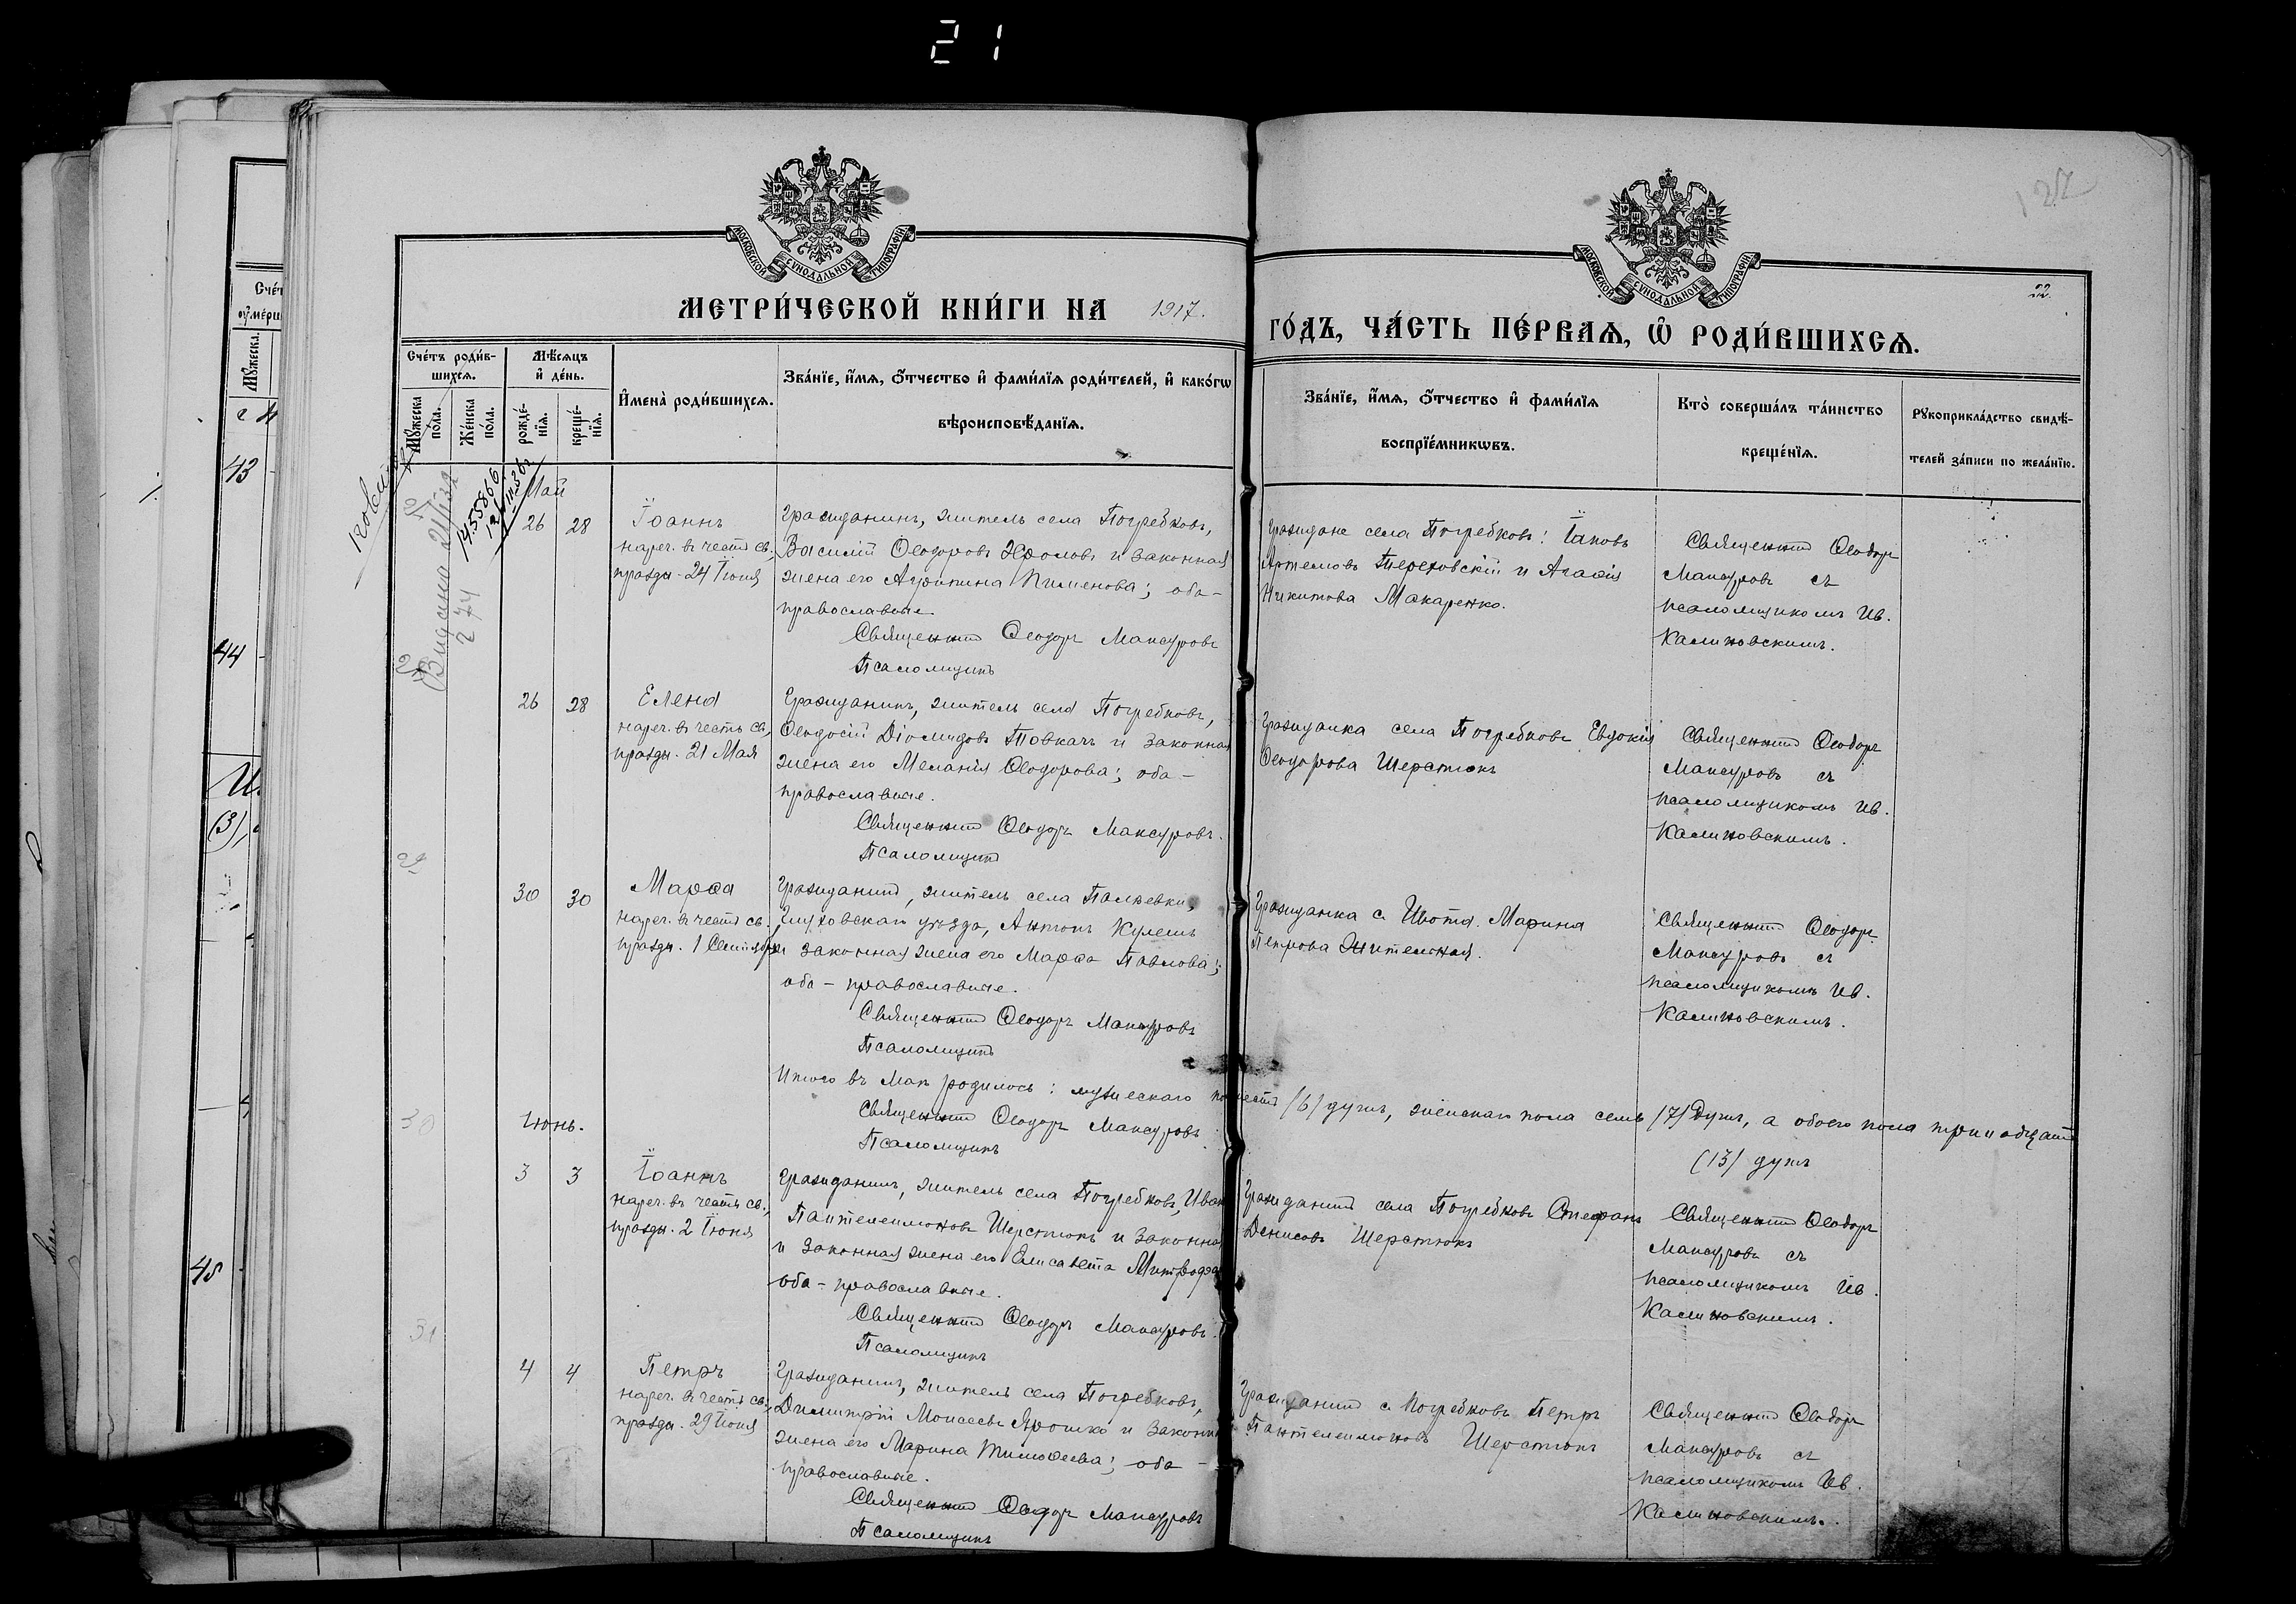 21
МОСКОВСКОЙ СУНОДАЛЬНОЙ ТИПОГРАФІИ
МОСКОВСКОЙ СУНОДАЛЬНОЙ ТИПОГРАФІИ
22
МЕТРИ́ЧЕСКОЙ КНИ́ГИ НА 1917.
ГО́ДЪ, ЧА́СТЬ ПЕ́РВАѦ, Ѡ҆ РОДИ́ВШИХСѦ.
Сче́тъ роди́в-
шихсѧ.
Мꙋ́жеска по́ла.
Же́нска по́ла.
Мѣ́сѧцъ
и҆ де́нь.
рожде́-
нїѧ.
креще́-
нїѧ.
И҆мена̀ роди́вшихсѧ.
Зва́нїе, и҆́мѧ, ѻ҆́тчество и҆ фами́лїѧ роди́телей, и҆ како́гѡ
вѣроисповѣ́данїѧ.
Зва́нїе, и҆́мѧ, ѻ҆́тчество и҆ фами́лїѧ
воспрїе́мникѡвъ.
Кто̀ соверша́лъ та́инство
креще́нїѧ.
Рꙋкоприкла́дство свидѣ́-
телей за́писи по жела́нїю.
Май
26 28
Іоаннъ
нареч. въ честь св.
праздн. 24 Іюня
Гражданинъ, житель села Погребковъ,
Василій Ѳеодоровъ Хролов и законная
жена его Агрипина Пименова; оба-
православные
Священникъ Ѳеодоръ Мансуровъ
Псаломщикъ
Граждане села Погребковъ: Іаковъ
Артемовъ Тереховскій и Агафія
Никитова Макаренко.
Священникъ Ѳеодоръ
Мансуровъ съ
псаломщикомъ Ив.
Калиновскимъ.
26 28
Елена
нареч. въ честь св.,
праздн. 21 Мая
Гражданинъ, житель села Погребковъ,
Ѳеодосій Діомидовъ Товкачъ и законная
жена его Меланія Ѳеодорова; оба-
православные.
Священникъ Ѳеодоръ Мансуровъ.
Псаломщикъ
Гражданка села Погребковъ Евдокія
Ѳеодорова Шерстюкъ
Священникъ Ѳеодоръ
Мансуровъ съ
псаломщикомъ Ив.
Калиновскимъ.
29
30 30
Марѳа
нареч. въ честь св.
праздн. 1 Сентября
Гражданинъ, житель села
Глуховскаго уѣзда, Антонъ Кулешъ
и законная жена его Марѳа Павлова;
оба - православные.
Священникъ Ѳеодоръ Мансуровъ
Псаломщикъ
Гражданка с. Ивота Марина
Петрова
Священникъ Ѳеодоръ
Мансуровъ съ
псаломщикомъ Ив.
Калиновскимъ.
Итого въ Маѣ родилось: мужескаго /6/ душъ, женскаго пола семь /7/ душъ, а обоего пола тринадцать
(13) душъ
Священникъ Ѳеодоръ Мансуровъ.
Псаломщикъ
30
Іюнь.
3 3
Іоаннъ
нареч. въ честь св.,
праздн. 2 Іюня
Гражданинъ, житель села Погребковъ, Иван
Пантелеимоновъ Шерстюкъ и законная
и законная жена его Елисавета Митрофа
оба - православные.
Священникъ Ѳеодоръ Мансуровъ.
Псаломщикъ
Гражданинъ села Погребковъ Стефанъ
Денисовъ Шерстюкъ
Священникъ Ѳеодоръ
Мансуровъ съ
псаломщикомъ Ив.
Калиновскимъ.
31
4 4
Петръ
нареч. въ честь св.,
праздн. 29 Іюня
Гражданинъ, житель села Погребковъ,
Димитрій Моисеевъ Ярошко и законная
жена его Марина Тимоѳеева; оба -
православные.
Священникъ Ѳеодоръ Мансуровъ
Псаломщикъ
Гражданинъ с. Погребковъ Петръ
Пантелеимоновъ Шерстюкъ
Священникъ Ѳеодоръ
Мансуровъ съ
псаломщикомъ Ив.
Калиновскимъ.
43
44
45